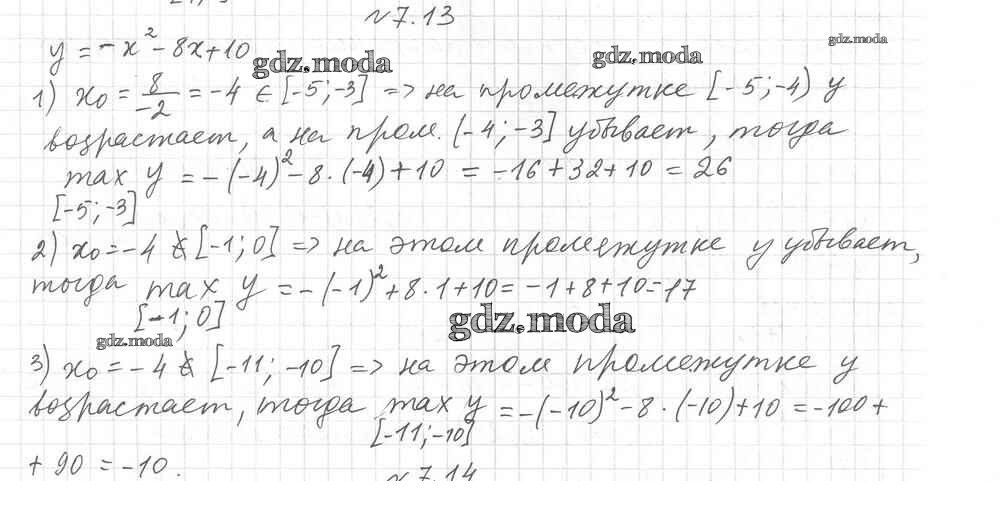 №7.13
y = -x² - 8x + 10
gdz.moda
gdz.moda
gdz.moda
1) x₀ = 8/-2 = -4 ∈ [-5; -3] => на промежутке [-5; -4) y
возрастает, а на пром. (-4; -3] убывает, тогда
max y = -(-4)² - 8·(-4) + 10 = -16 + 32 + 10 = 26
[-5; -3]
2) x₀ = -4 ∉ [-1; 0] => на этом промежутке y убывает,
тогда max y = -(-1)² + 8·1 + 10 = -1 + 8 + 10 = 17
[-1; 0]
gdz.moda
gdz.moda
3) x₀ = -4 ∉ [-11; -10] => на этом промежутке y
возрастает, тогда max y = -(-10)² - 8·(-10) + 10 = -100 +
[-11; -10]
+ 90 = -10.
№7.14